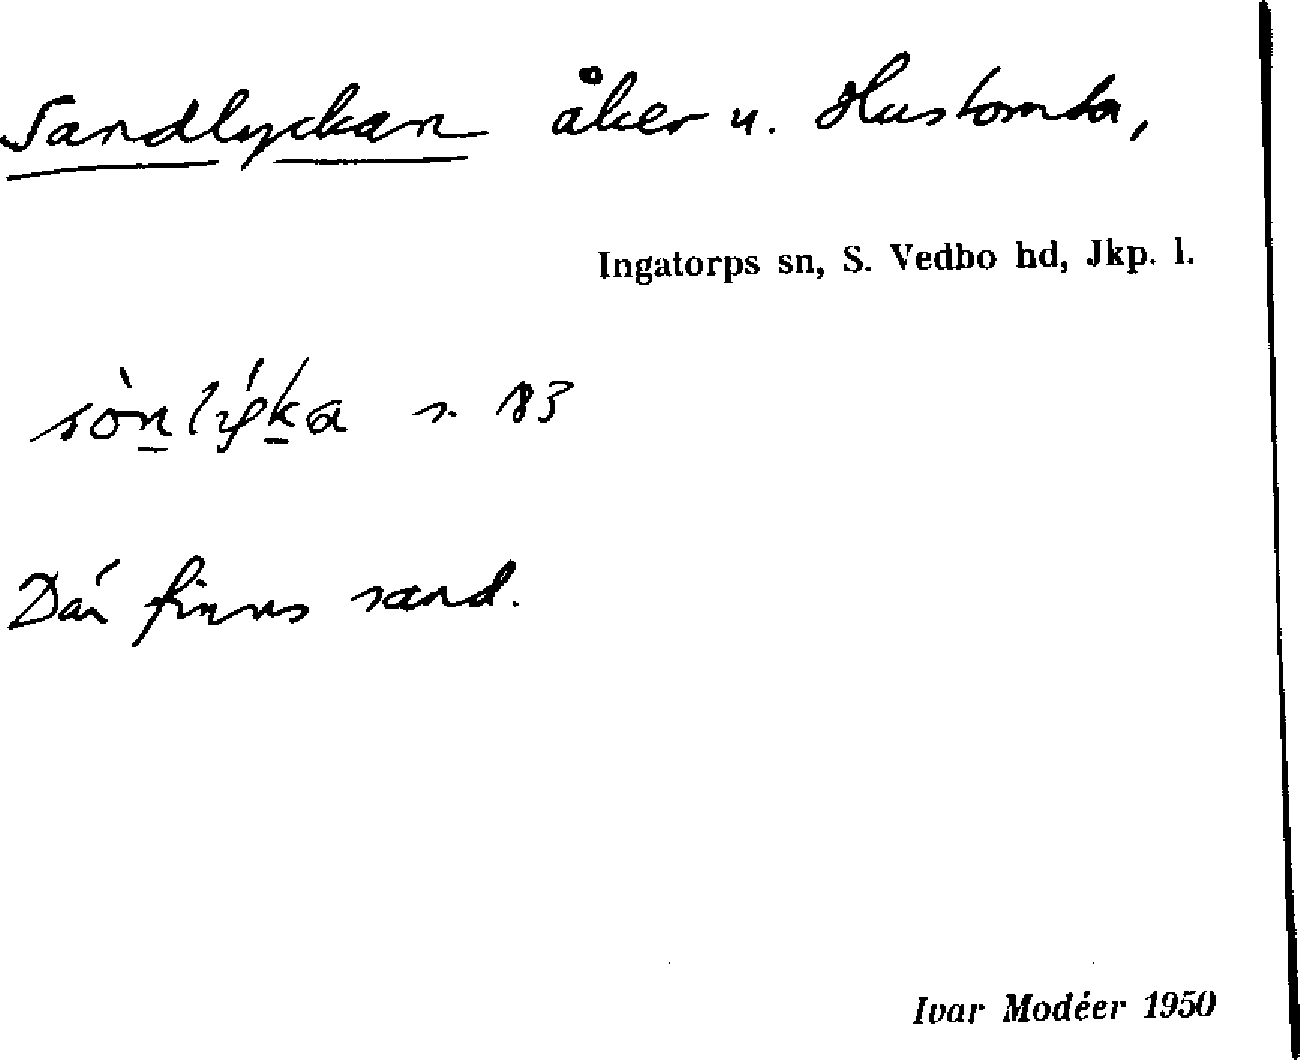 Sandlyckan åker u. Hustomta,
Ingatorps sn, S. Vedbo hd, Jkp. l.
s. 83
Där finns sand.
Ivar Modéer 1950